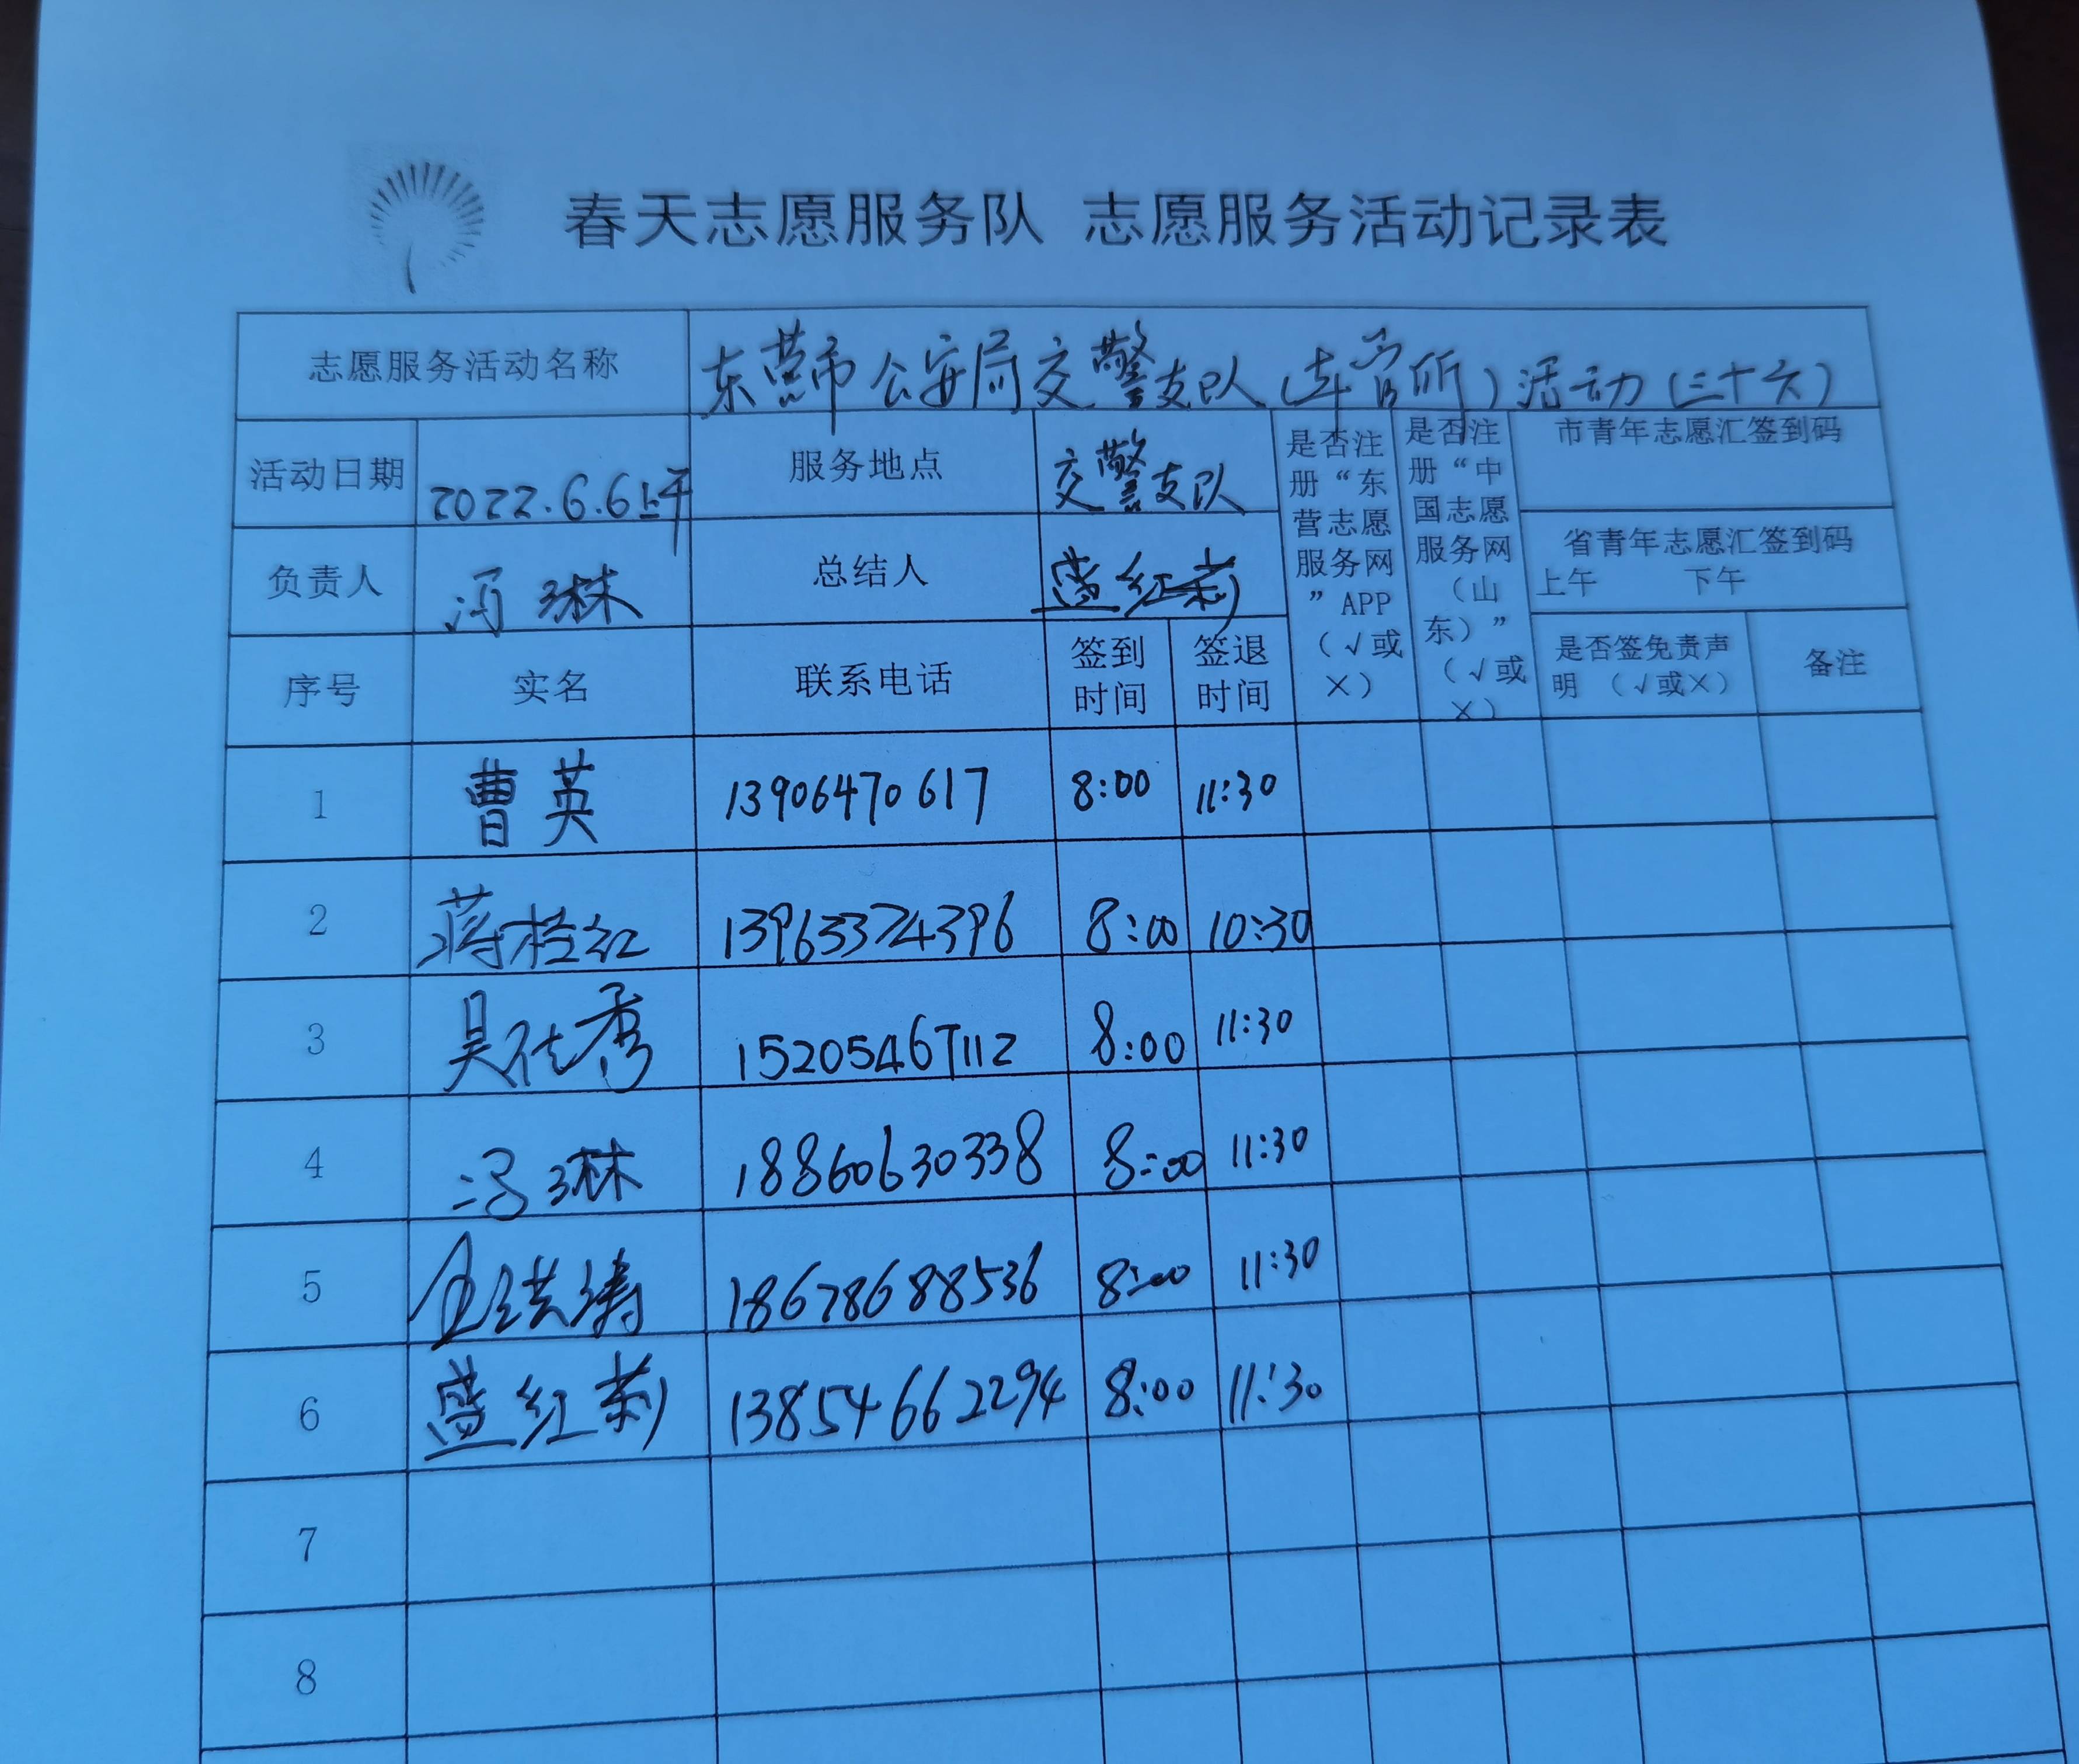 春天志愿服务队 志愿服务活动记录表
志愿服务活动名称 东营市公安局交警支队(车管所)活动(三十六)
活动日期 2022.6.6上午 服务地点 交警支队
是否注册“东营志愿服务网”APP(√或×)
是否注册“中国志愿服务网(山东)”(√或×)
市青年志愿汇签到码
省青年志愿汇签到码
上午 下午
负责人 冯琳 总结人 蓝红莉
序号 实名 联系电话 签到时间 签退时间 是否签免责声明 (√或×) 备注
1 曹英 13906470617 8:00 11:30
2 蒋桂红 13963374396 8:00 10:30
3 吴代秀 15205467112 8:00 11:30
4 冯琳 18860630338 8:00 11:30
5 18678688536 8:00 11:30
6 蓝红莉 13854662294 8:00 11:30
7
8